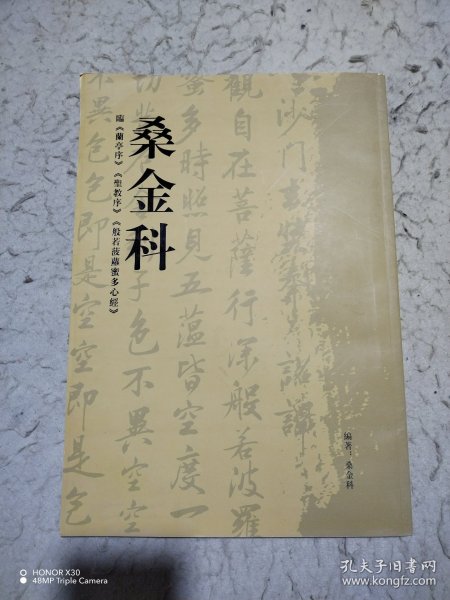 桑金科
臨《蘭亭序》《聖教序》《般若菠蘿蜜多心經》
編著：桑金科
觀自在菩薩行深般若波羅
蜜多時照見五蘊皆空度一
子色不異空空
不異色色即是空空即是色
HONOR X30
48MP Triple Camera
孔夫子旧书网
www.kongfz.com